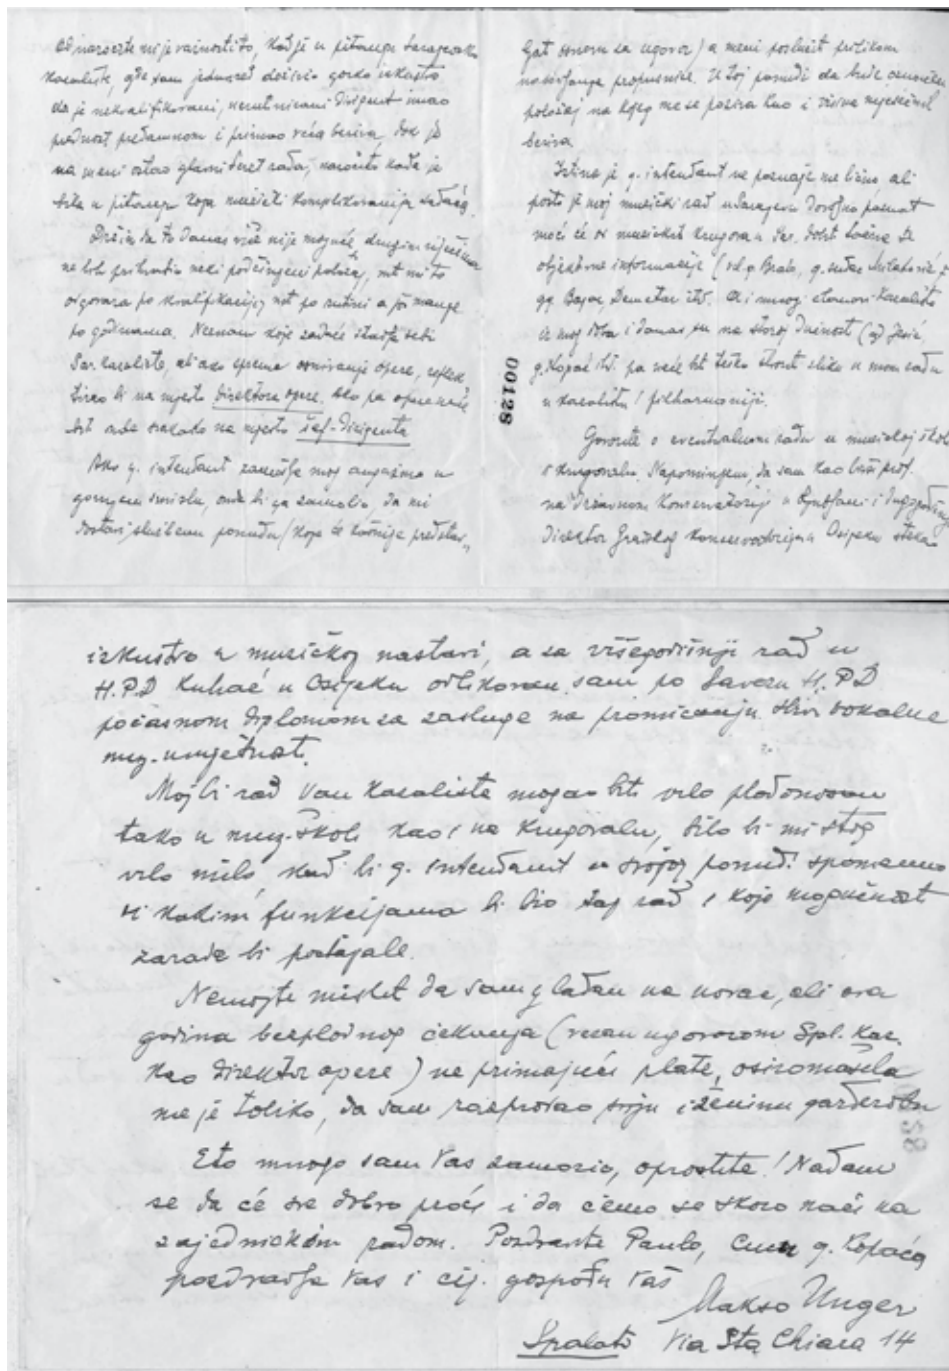 od naročite mi je važnosti to, kad je u pitanju Sarajevsko
kazalište, gdje sam jedanred doživio gorko iskustvo
da je nekvalifikovani, nerutinirani dirigent imao
prednost predamnom i primao veća beriva, dok je
na meni ostao glavni teret rada, naročito kada je
bila u pitanju koja muzički komplikovanija zadaća.
Držim da to danas više nije moguće, drugim riječima
ne bih prihvatio neki podčinjeni položaj, jer mi to
odgovara po kvalifikaciji, niti po rutini a još manje
po godinama. Neznam koje zadaće stavlja sebi
Sar. kazalište, ali ako sprema osnivanje opere, reflek-
tirao bi na mjesto direktora opere, ako pa opere neće
bit onda svakako na mjesto šef-dirigenta
Ako g. intendant zamišlja moj angažman u
gornjem smislu, onda bi ga zamolio, da mi
dostavi službenu ponudu (koja će kasnije predstav-
ljat osnovu za ugovor) a meni poslužit prilikom
nabavljanja propusnice. U toj ponudi da bude označen
položaj na kojeg me se poziva kao i visina mjesečnih
beriva.
Istina je g. intendant ne poznaje me lično ali
pošto je moj muzički rad u Sarajevu dovoljno poznat
moći će od muzičkih krugova u Sar. dobit tačne i
objektivne informacije (
gg. Bajac, Demetar itd. Ali i mnogi članovi kazališta
iz mog doba i danas su na staroj dužnosti (g. Jesić,
g. Kopač itd. pa neće bit teško stvorit sliku o mom radu
u kazalištu i filharmoniji.
Govorite o eventualnom radu u muzičkoj školi
i krugovalu. Napominjem, da sam kao bivši prof.
na državnom konservatoriju u Ljubljani i dugogodišnji
direktor Gradskog konservatorija u Osijeku stekao
00128
iskustvo u muzičkoj nastavi, a za višegodišnji rad u
H.P.D Kuhač u Osijeku odlikovan sam po Savezu H.P.D
počasnom diplomom za zasluge na promicanju hrv. vokalne
muz. umjetnosti.
Moj bi rad van kazališta mogao biti vrlo plodonosan
tako u muz. školi kao i na krugovalu, bilo bi mi stog
vrlo milo, kad bi g. intendant u svojoj ponudi spomenuo
u kakim funkcijama bi bio taj rad i koje mogućnosti
zarade bi postojale.
Nemojte mislit da sam gladan na novac, ali ova
godina bezplodnog čekanja (vezan ugovorom Spl. kaz.
kao direktor opere) ne primajući plate, osiromašila
me je toliko, da sam rasprodao svoju i ženinu garderobu
Eto mnogo sam Vas zamorio, oprostite! Nadam
se da će sve dobro proći i da ćemo se skoro naći na
zajedničkim radom. Pozdravite Paulo, g. Kopača
pozdravlja Vas i cij. gospođu Vaš
Makso Unger
Spalato Via Sta Chiara 14